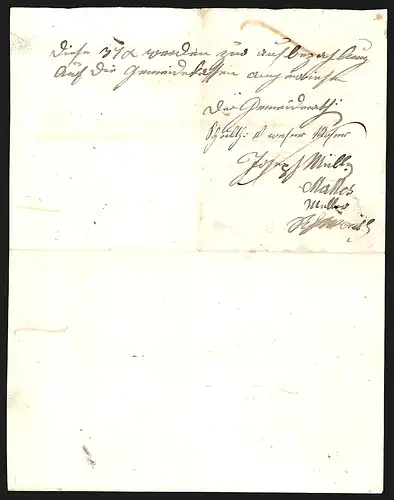 Diese 37 x werden zur aufbezahlung
Auf die Gemeindekassen angewiesen
Der Gemeinderath:
Schulth: Verweser Moser
Joseph Mülle
Mattes
Müller